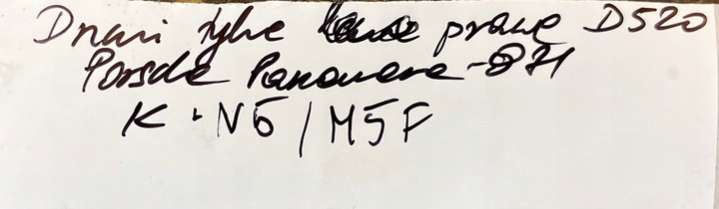 Drzwi tylne prawe D520
Porsche Panamera - 971
K · N5 / M5F